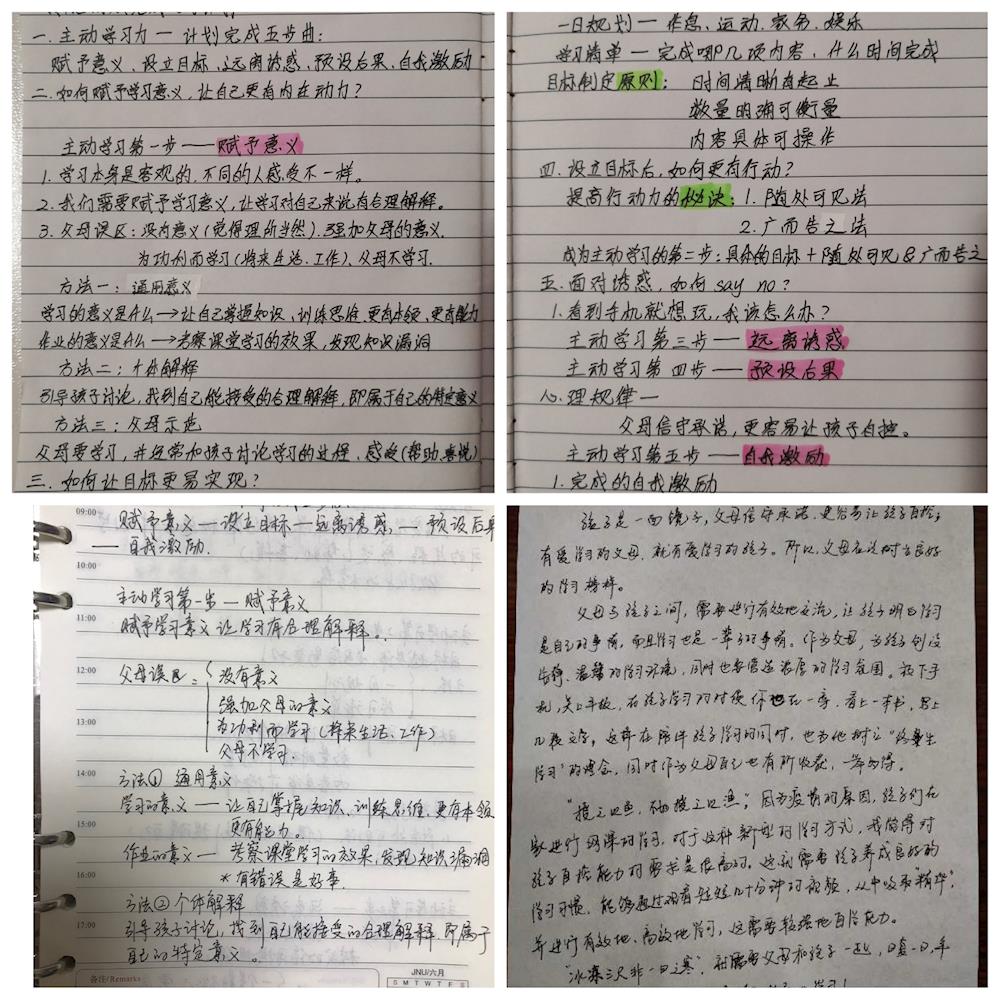 一.主动学习力 — 计划完成五步曲:
赋予意义、设立目标、远离诱惑、预设后果、自我激励
二.如何赋予学习意义,让自己更有内在动力?
主动学习第一步——赋予意义
1.学习本身是客观的,不同的人感受不一样。
2.我们需要赋予学习意义,让学习对自己来说有合理解释。
3.父母误区:没有意义(觉得理所当然).强加父母的意义.
为功利而学习(将来生活.工作)、父母不学习.
方法一:通用意义
学习的意义是什么→让自己掌握知识、训练思维、更有本领、更有能力
作业的意义是什么→考察课堂学习的效果,发现知识漏洞
方法二:个体解释
引导孩子讨论,找到自己能接受的合理解释,即属于自己的特定意义
方法三:父母示范
父母要学习,并经常和孩子讨论学习的过程、感受(帮助.喜悦)
三.如何让目标更易实现?
一日规划 — 作息、运动、家务、娱乐
学习清单 — 完成哪几项内容、什么时间完成
目标制定原则: 时间清晰有起止
数量明确可衡量
内容具体可操作
四.设立目标后,如何更有行动?
提高行动力的秘诀:1.随处可见法
2.广而告之法
成为主动学习的第二步:具体的目标+随处可见&广而告之
五.面对诱惑,如何say no?
1.看到手机就想玩,我该怎么办?
主动学习第三步——远离诱惑
主动学习第四步——预设后果
心理规律—
父母信守承诺,更容易让孩子自控。
主动学习第五步——自我激励
1.完成的自我激励
09:00
赋予意义—设立目标—远离诱惑—预设后果
——自我激励.
10:00
主动学习第一步—赋予意义
11:00
赋予学习意义让学习有合理解释.
12:00
父母误区: 没有意义
强加父母的意义
13:00
为功利而学习(将来生活、工作)
父母不学习.
14:00
方法① 通用意义
学习的意义——让自己掌握知识、训练思维、更有本领
15:00
更有能力。
作业的意义—考察课堂学习的效果,发现知识漏洞
16:00
*有错误是好事.
方法②个体解释
17:00
引导孩子讨论,找到自己能接受的合理解释.即属于
自己的特定意义。
备注/Remarks
JUN/六月
S M T W T F S
孩子是一面镜子,父母信守承诺.更容易让孩子自控;
有爱学习的父母,就有爱学习的孩子。所以,父母应该树立良好
的学习榜样。
父母与孩子之间,需要进行有效地交流,让孩子明白学习
是自己的事情,而且学习也是一辈子的事情。作为父母,为孩子创设
安静、温馨的学习环境,同时也要营造浓厚的学习氛围。放下手
机,关上平板,在孩子学习的时候你也在一旁.看上一本书,写上
几段文字,这样在陪伴孩子学习的同时,也为他树立“终身
学习”的理念,同时作为父母自己也有所收获,一举两得。
“授之以鱼,不如授之以渔”,因为疫情的原因,孩子们在
家进行网课的学习,对于这种新型的学习方式,我觉得对
孩子自控能力的需求是很高的。这就需要孩子养成良好的
学习习惯,能够通过观看短短几十分钟的视频,从中吸取“精华”,
并进行有效地、高效地学习,这需要较强地自学能力。
“冰冻三尺非一日之寒”,就需要父母和孩子一起,日复一日,年